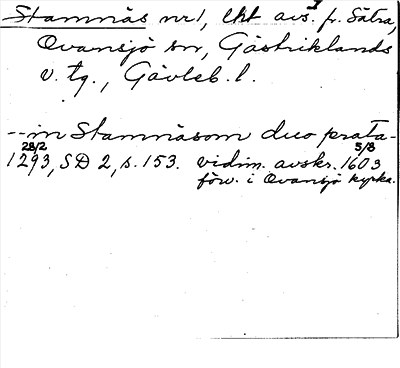 Stamnäs nr 1, lht avs. fr. Sätra,
Ovansjö sn, Gästriklands
v. tg., Gävleb. l.
-- in Stamnäsom duo prata -
28/2 1293, SD 2, s. 153. vidim. avskr. 5/8 1603
förv. i Ovansjö kyrka.